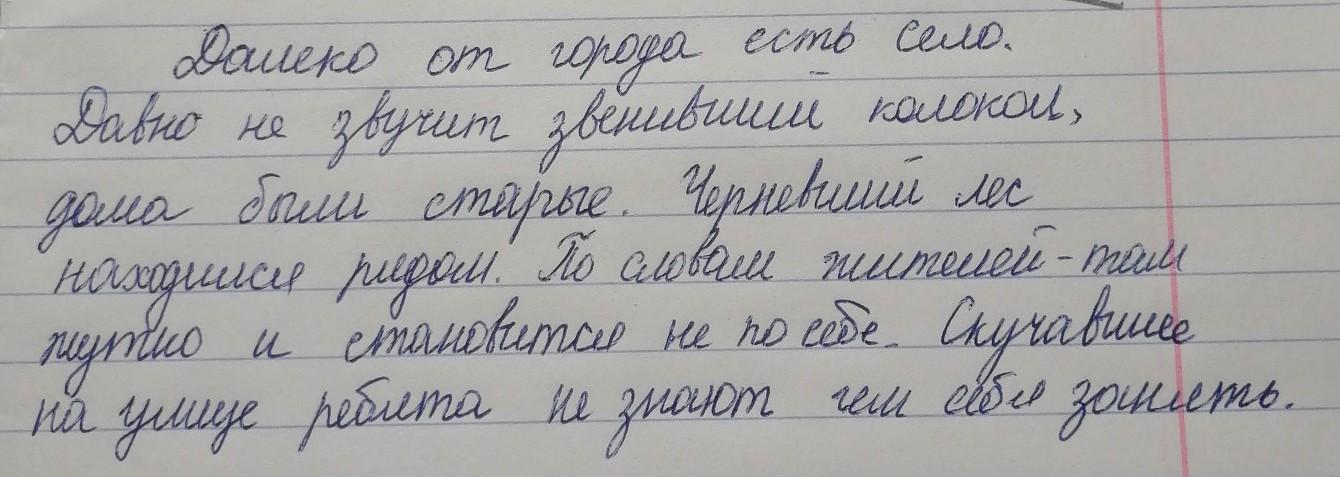 Далеко от города есть село.
Давно не звучит звенивший колокол,
дома были старые. Черневший лес
находился рядом. По словам жителей - там
жутко и становится не по себе. Скучавшие
на улице ребята не знают чем себя занять.